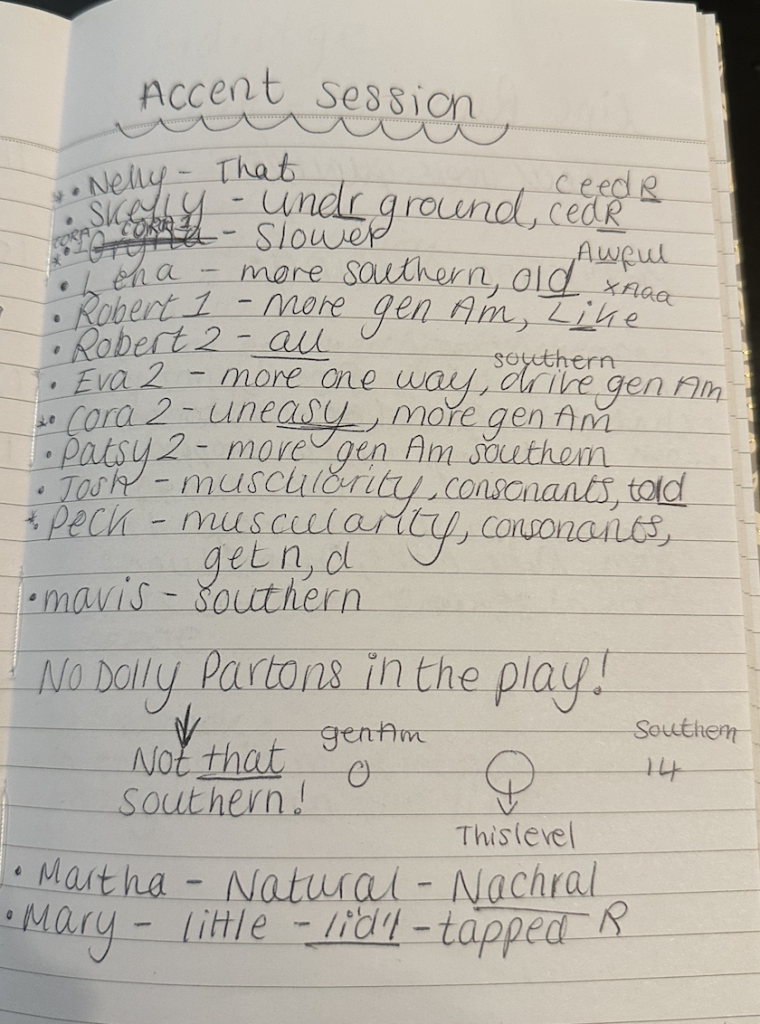 Accent session
* • Nelly - That
ceedR
• Skelly - undrground, cedR
CORA CORA 1
* • - Slower
Awful
• Lena - more southern, old xAaa
• Robert 1 - more gen Am, Like
• Robert 2 - all
southern
• Eva 2 - more one way, drive gen Am
• Cora 2 - uneasy, more gen Am
• Patsy 2 - more gen Am southern
• Josh - muscularity, consonants, told
* Peck - muscularity, consonants,
get n, d
• mavis - southern
No Dolly Partons in the play!
Not that southern!
genAm
0
Southern
14
This level
• Martha - Natural - Nachral
• Mary - little - lid'l - tapped R